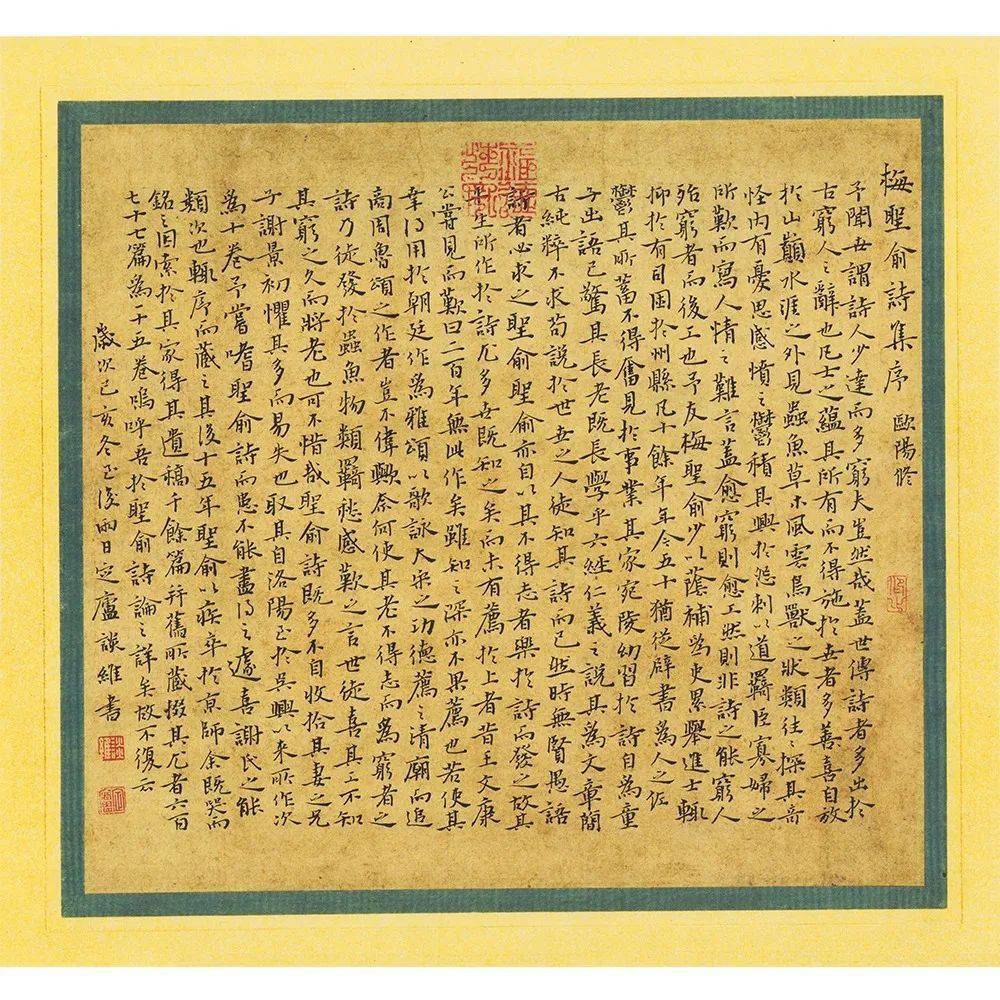 梅聖俞詩集序 歐陽修
予聞世謂詩人少達而多窮夫豈然哉蓋世傳詩者多出於
古窮人之辭也凡士之蘊其所有而不得施於世者多善喜自放
於山巔水涯之外見蟲魚草木風雲鳥獸之狀類往往探其奇
怪内有憂思感憤之鬱積其興於怨刺以道羈臣寡婦之
所歎而寫人情之難言蓋愈窮則愈工然則非詩之能窮人
殆窮者而後工也予友梅聖俞少以蔭補為吏累舉進士輒
抑於有司困於州縣凡十餘年年今五十猶從辟書為人之佐
鬱其所蓄不得奮見於事業其家宛陵幼習於詩自為童
子出語已驚其長老既長學乎六經仁義之說其為文章簡
古純粹不求苟說於世世之人徒知其詩而已然時無賢愚語
詩者必求之聖俞亦自以其不得志者樂於詩而發之故其
平生所作於詩尤多世既知之矣而未有薦於上者昔王文康
公嘗見而歎曰二百年無此作矣雖知之深亦不果薦也若使其
幸得用於朝廷作為雅頌以歌詠大宋之功德薦之清廟而追
商周魯頌之作者豈不偉歟奈何使其老不得志而為窮者之
詩乃徒發於蟲魚物類羈愁感歎之言世徒喜其工不知
其窮之久而將老也可不惜哉聖俞詩既多不自收拾其妻之兄
子謝景初懼其多而易失也取其自洛陽至於吳興以來所作次
為十卷予嘗嗜聖俞詩而患不能盡得之遽喜謝氏之能
類次也輒序而藏之其後十五年聖俞以疾卒於京師余既哭而
銘之因索於其家得其遺稿千餘篇并舊所藏掇其尤者六百
七十七篇為十五卷嗚呼吾於聖俞詩論之詳矣故不復云
歲次己亥冬至後兩日定廬談維書